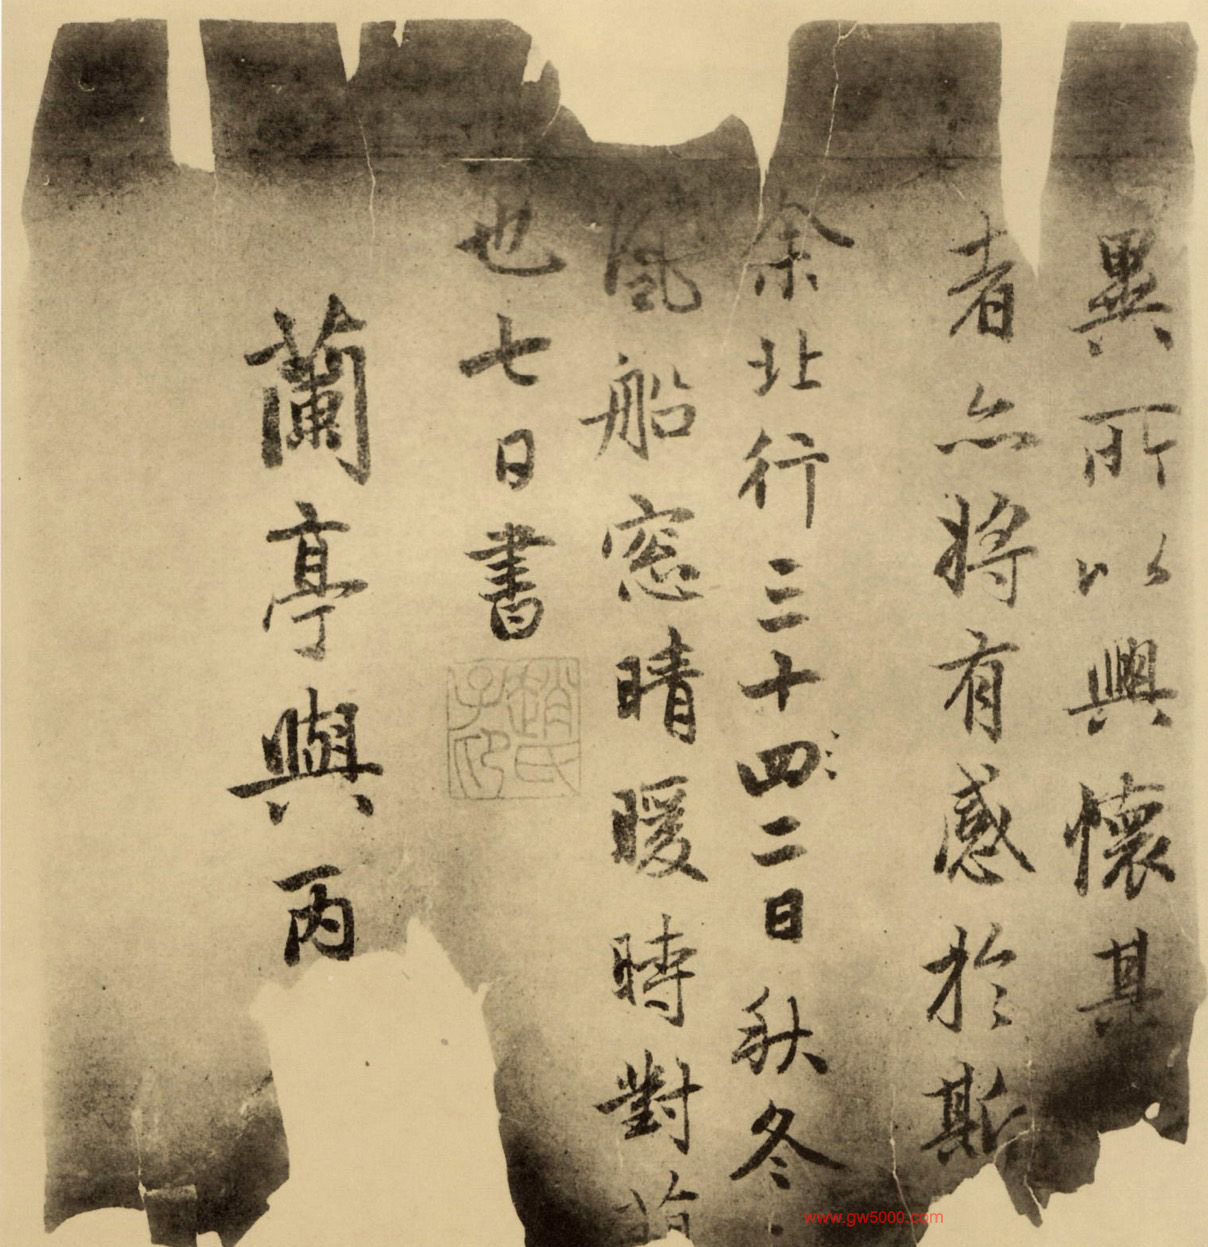 異所以興懷其
者亦將有感於斯
余北行三十四二日秋冬
風船窓晴暖時對
也七日書
蘭亭與丙
趙氏子印
www.gw5000.com